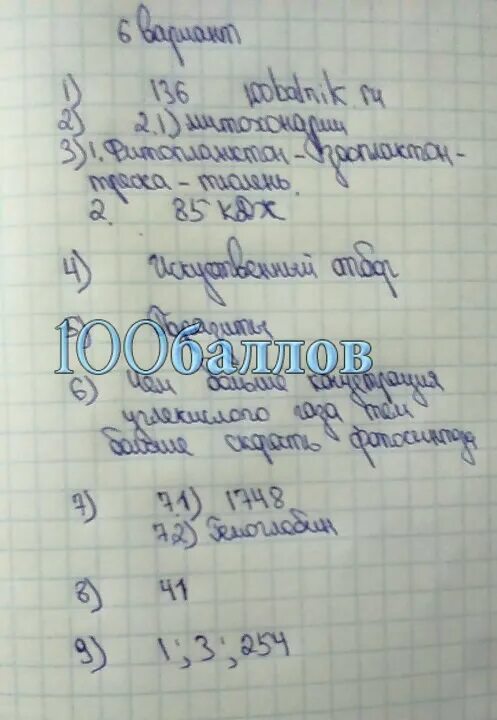 6 вариант
1) 136 100balnik.ru
2) 2.1) митохондрии
3) 1. Фитопланктон - зоопланктон -
треска - тюлень.
2. 85 кДж
4) Искуственный отбор
5) Паразиты
100баллов
6) Чем больше концетрация
углекислого газа тем
больше скорость фотосинтеза
7) 7.1) 1748
7.2) Гемоглобин
8) 41
9) 1; 3; 254